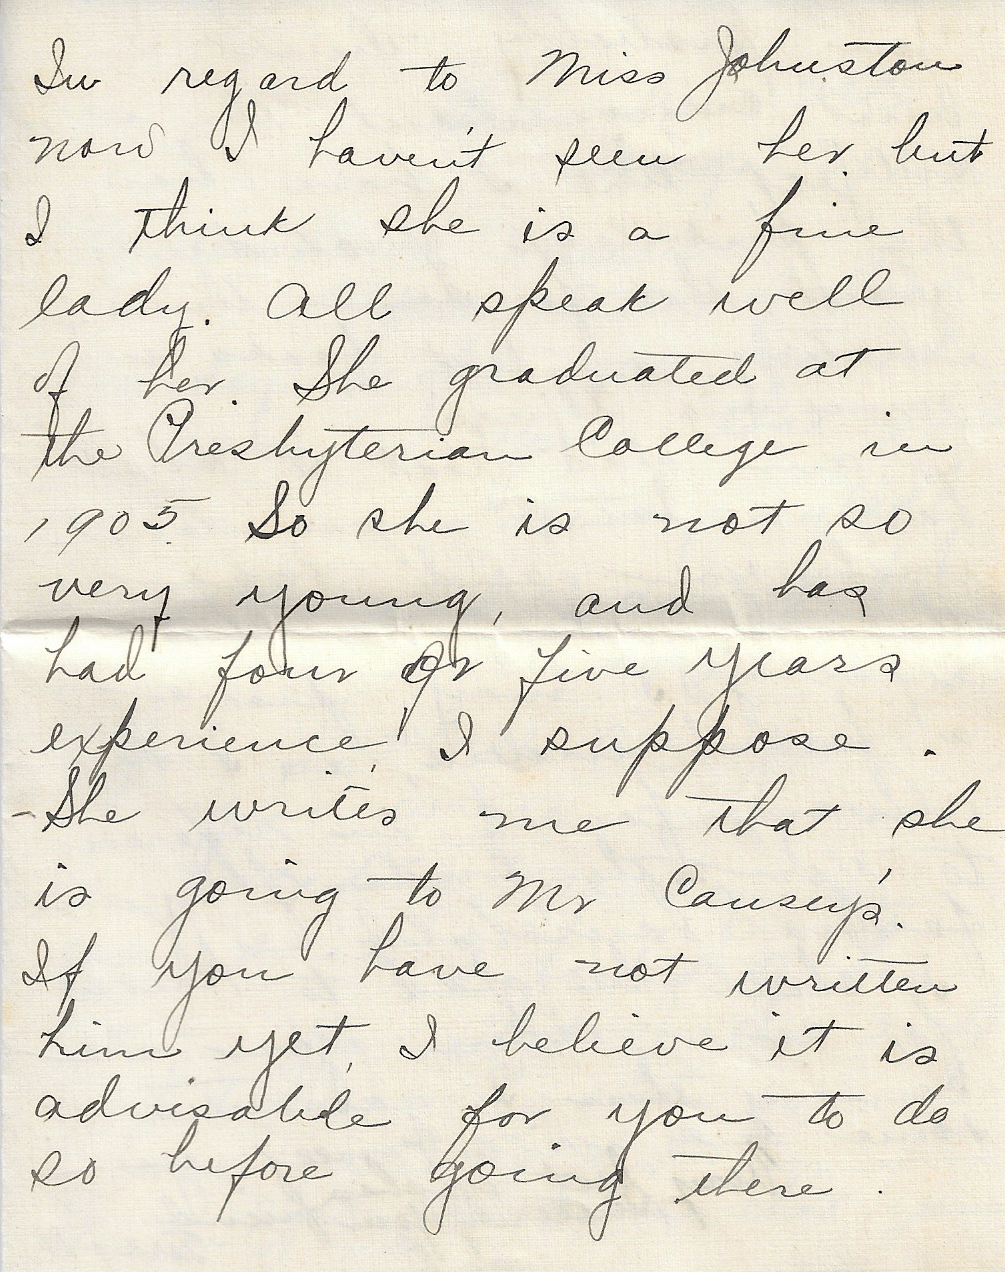 In regard to Miss Johnston
now I haven't seen her but
I think she is a fine
lady. All speak well
of her. She graduated at
the Presbyterian College in
1905. So she is not so
very young, and has
had four or five years
experience, I suppose.
- She writes me that she
is going to Mr Causey's.
If you have not written
him yet, I believe it is
advisable for you to do
so before going there.